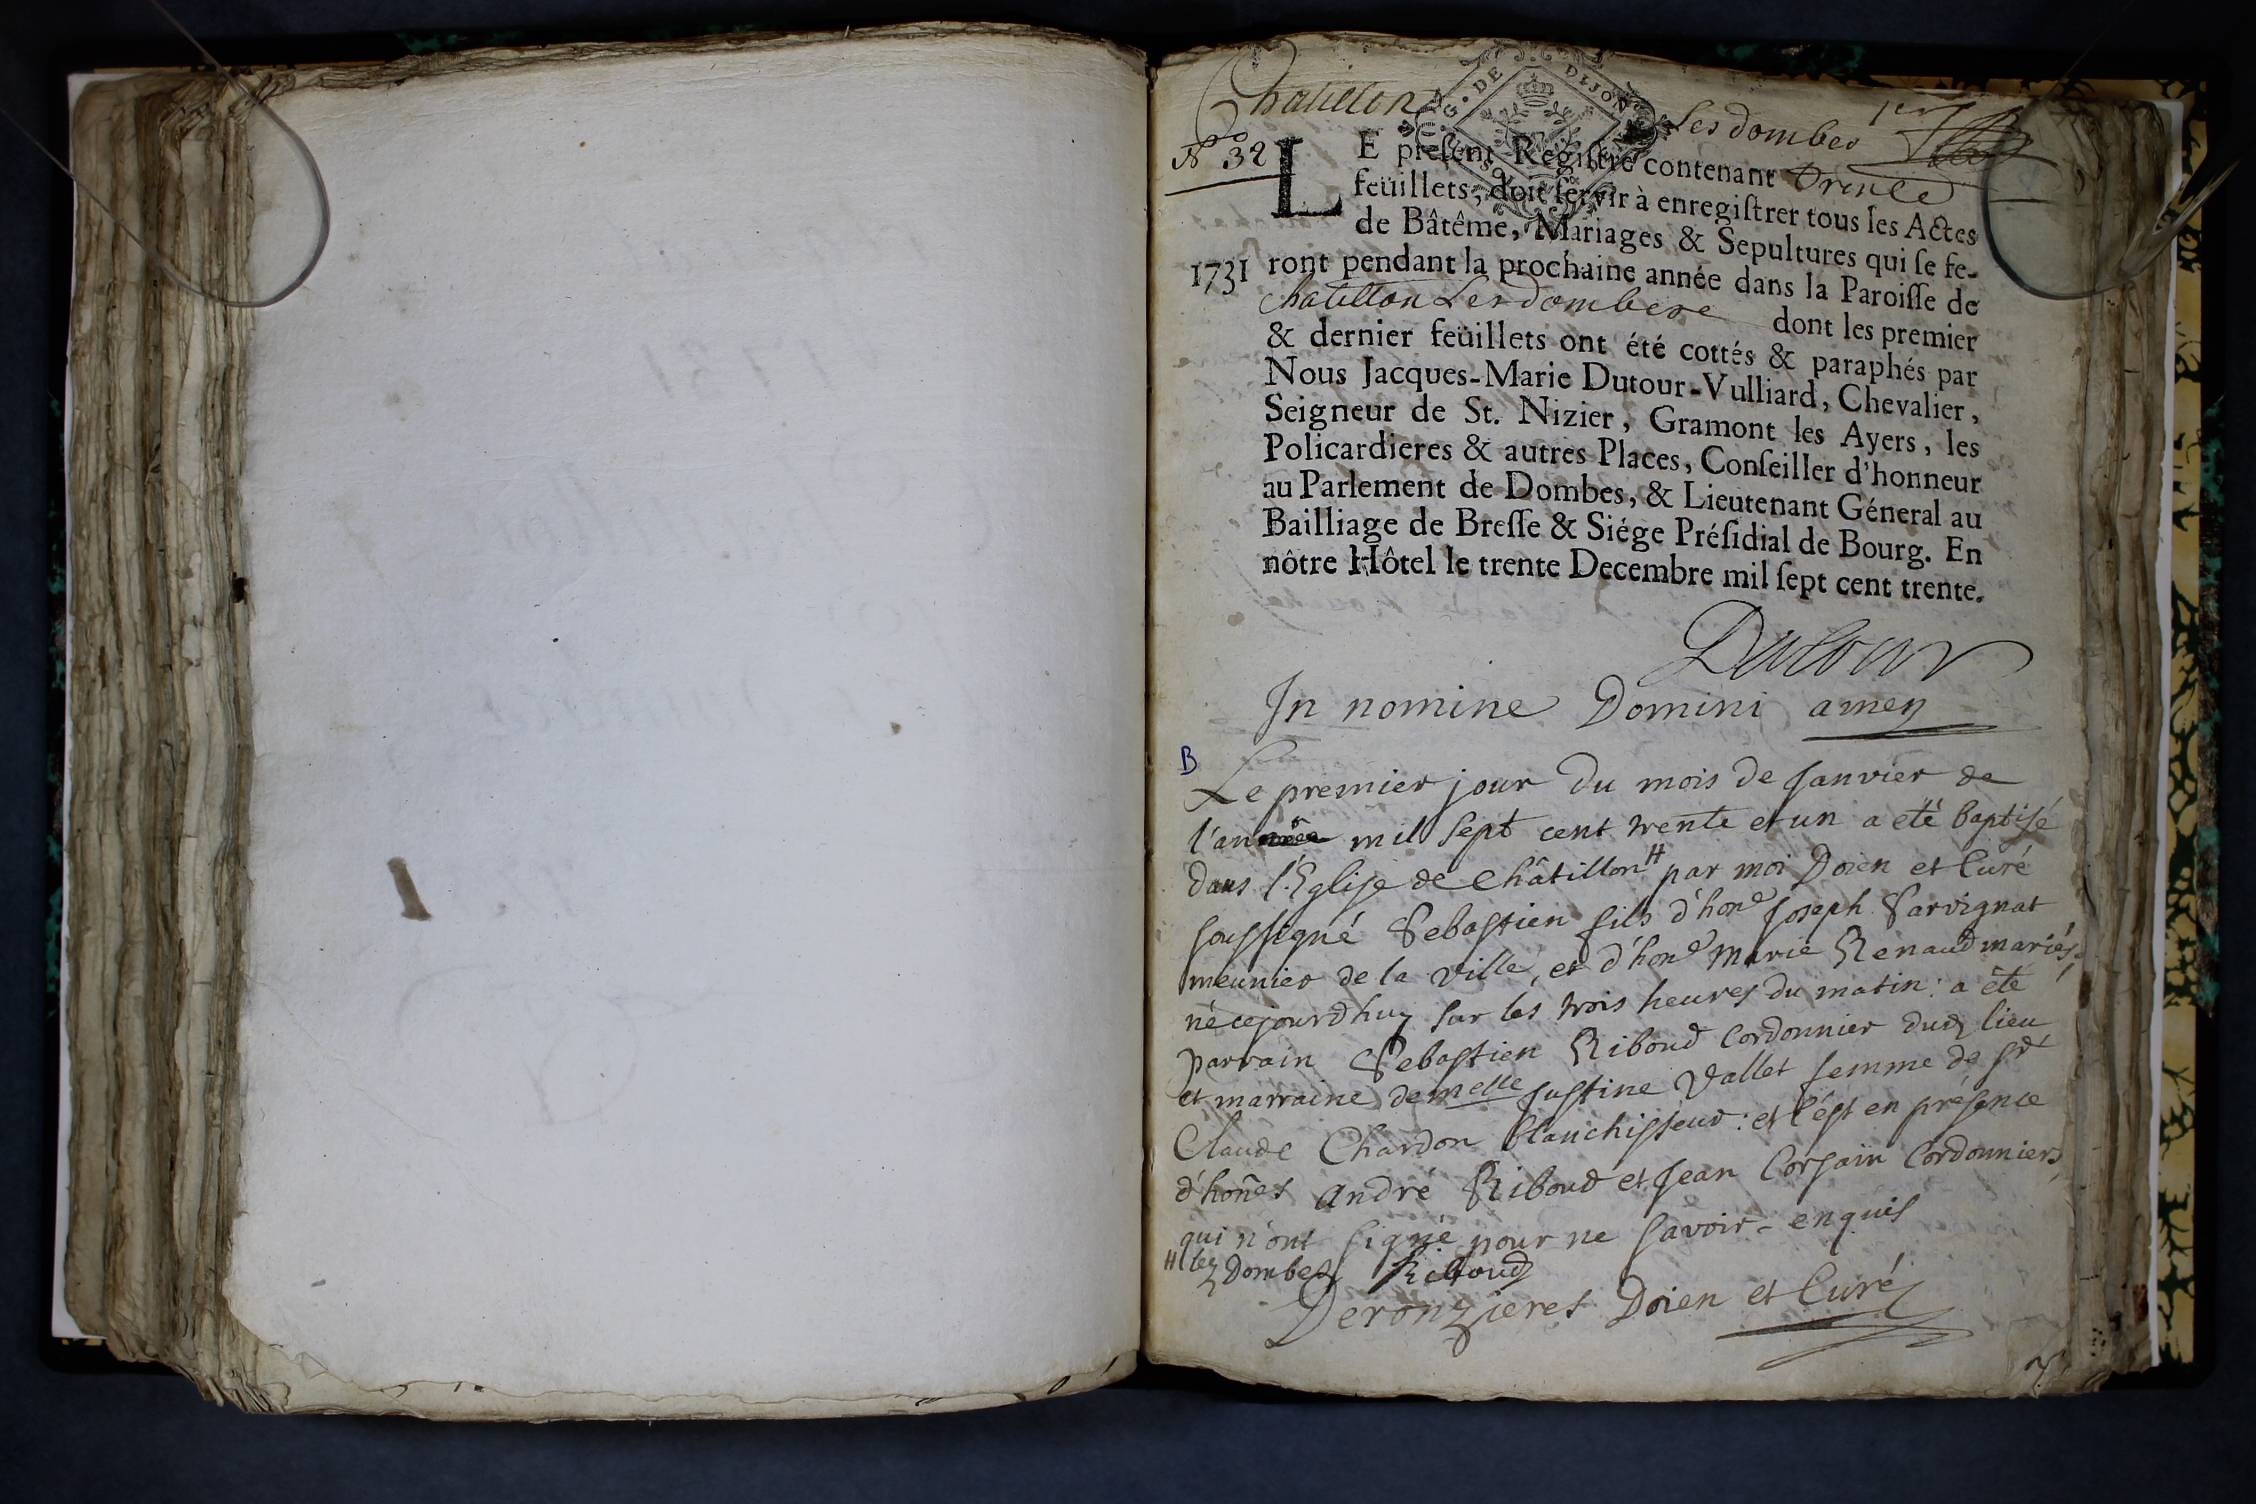 Chatillon Les dombes 1er
G. DE DIJON
N° 32
LE present Registre contenant trente
feüillets, doit servir à enregistrer tous les Actes
de Bâtême, Mariages & Sepultures qui se fe-
1731 ront pendant la prochaine année dans la Paroisse de
Chatillon Les dombese dont les premier
& dernier feüillets ont été cottés & paraphés par
Nous Jacques-Marie Dutour-Vulliard, Chevalier,
Seigneur de St. Nizier, Gramont les Ayers, les
Policardieres & autres Places, Conseiller d'honneur
au Parlement de Dombes, & Lieutenant Géneral au
Bailliage de Bresse & Siége Présidial de Bourg. En
nôtre Hôtel le trente Decembre mil sept cent trente.
Dutour
In nomine Domini amen
B
Le premier jour du mois de Janvier de
l'an mil sept cent trente et un a eté baptisé
dans l'Eglise de Châtillon H par moi Doien et Curé
soussigné Sebastien fils d'hone Joseph Sarvignat
meunier de la ville, et d'hone Marie Renaud mariés,
né cejourdhuy sur les trois heures du matin: a été
parrain Sebastien Riboud Cordonnier dud lieu
et marraine demelle Justine Vallet femme de sr
Claude Chardon blanchisseur: et c'est en présence
d'hones André Riboud et Jean Corsain Cordonniers,
qui n'ont signé pour ne savoir - enquis
H lez Dombes Riboud
Deronzieres Doien et Curé